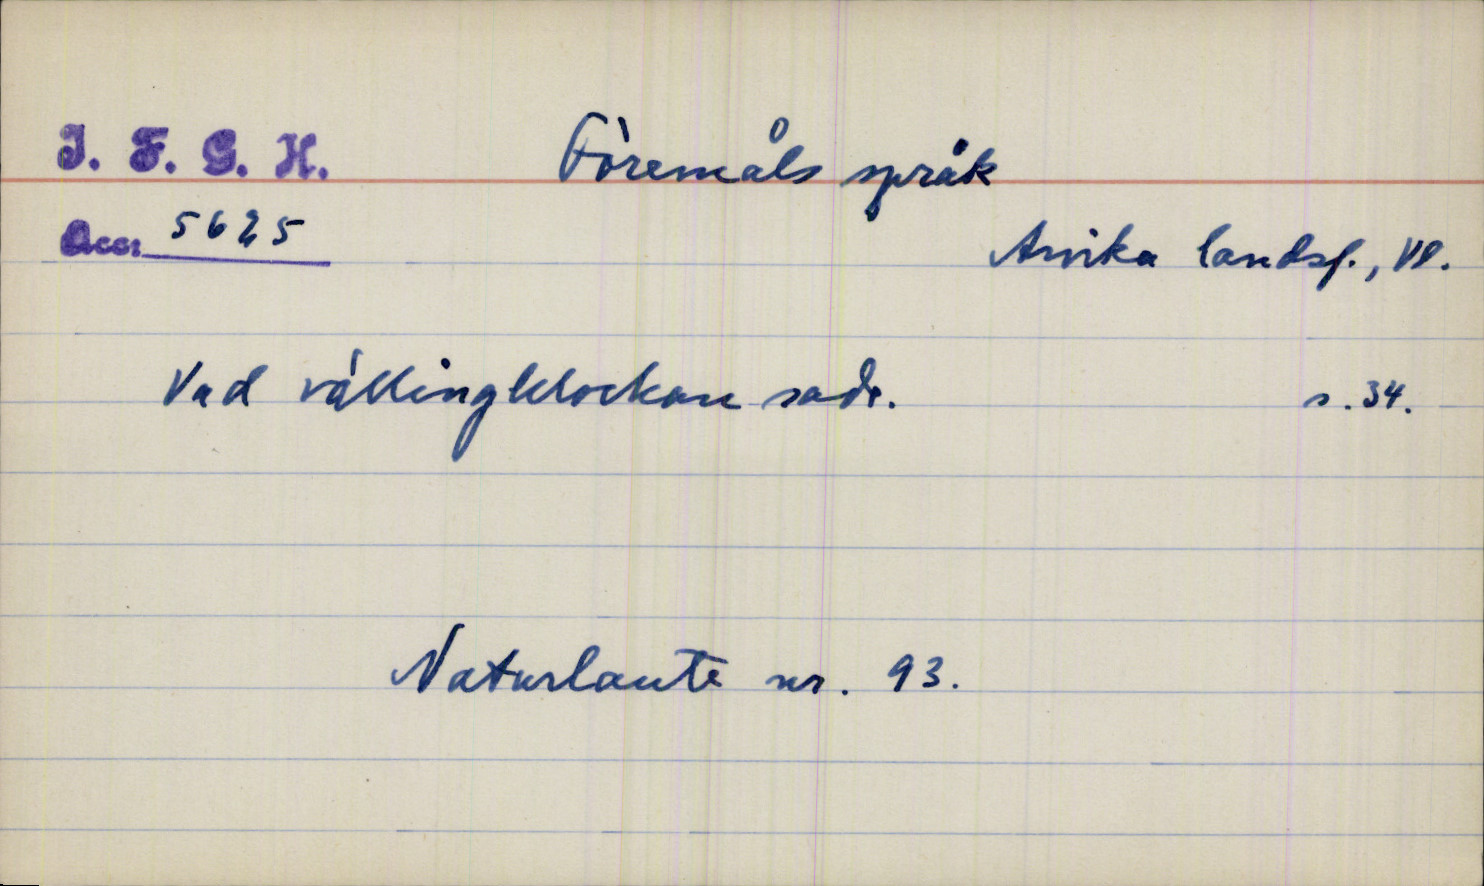 I. F. G. H.
Föremåls språk
Acc. 5625
Arvika landsf., Vl.
Vad vällingklockan sade.
s. 34.
Naturlaute nr. 93.